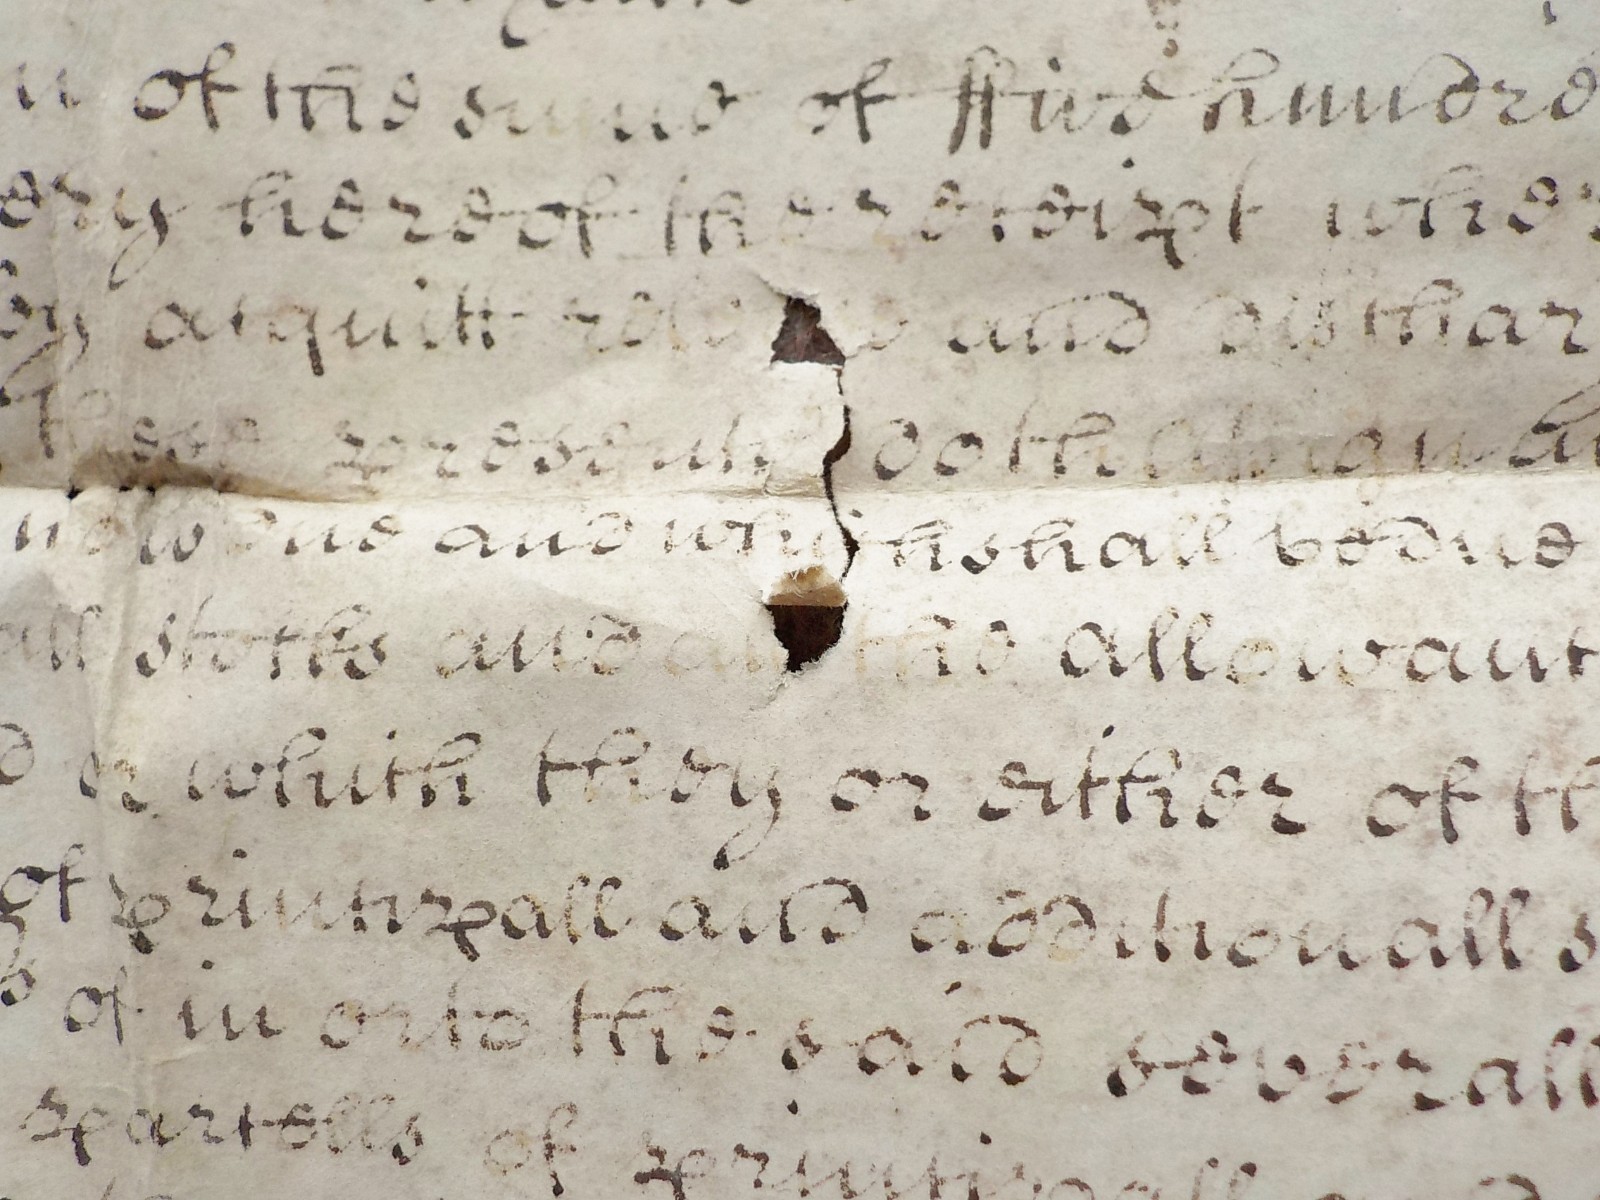 n of the summe of ffive hundre
ery hereof the receipt wher
by acquitt rele and dischar
these presents doth assigne
now due and which shall be due
all stocks and all allowanc
d or which they or either of th
of principall and additionall s
of in or to the said severall
parcells of principall and